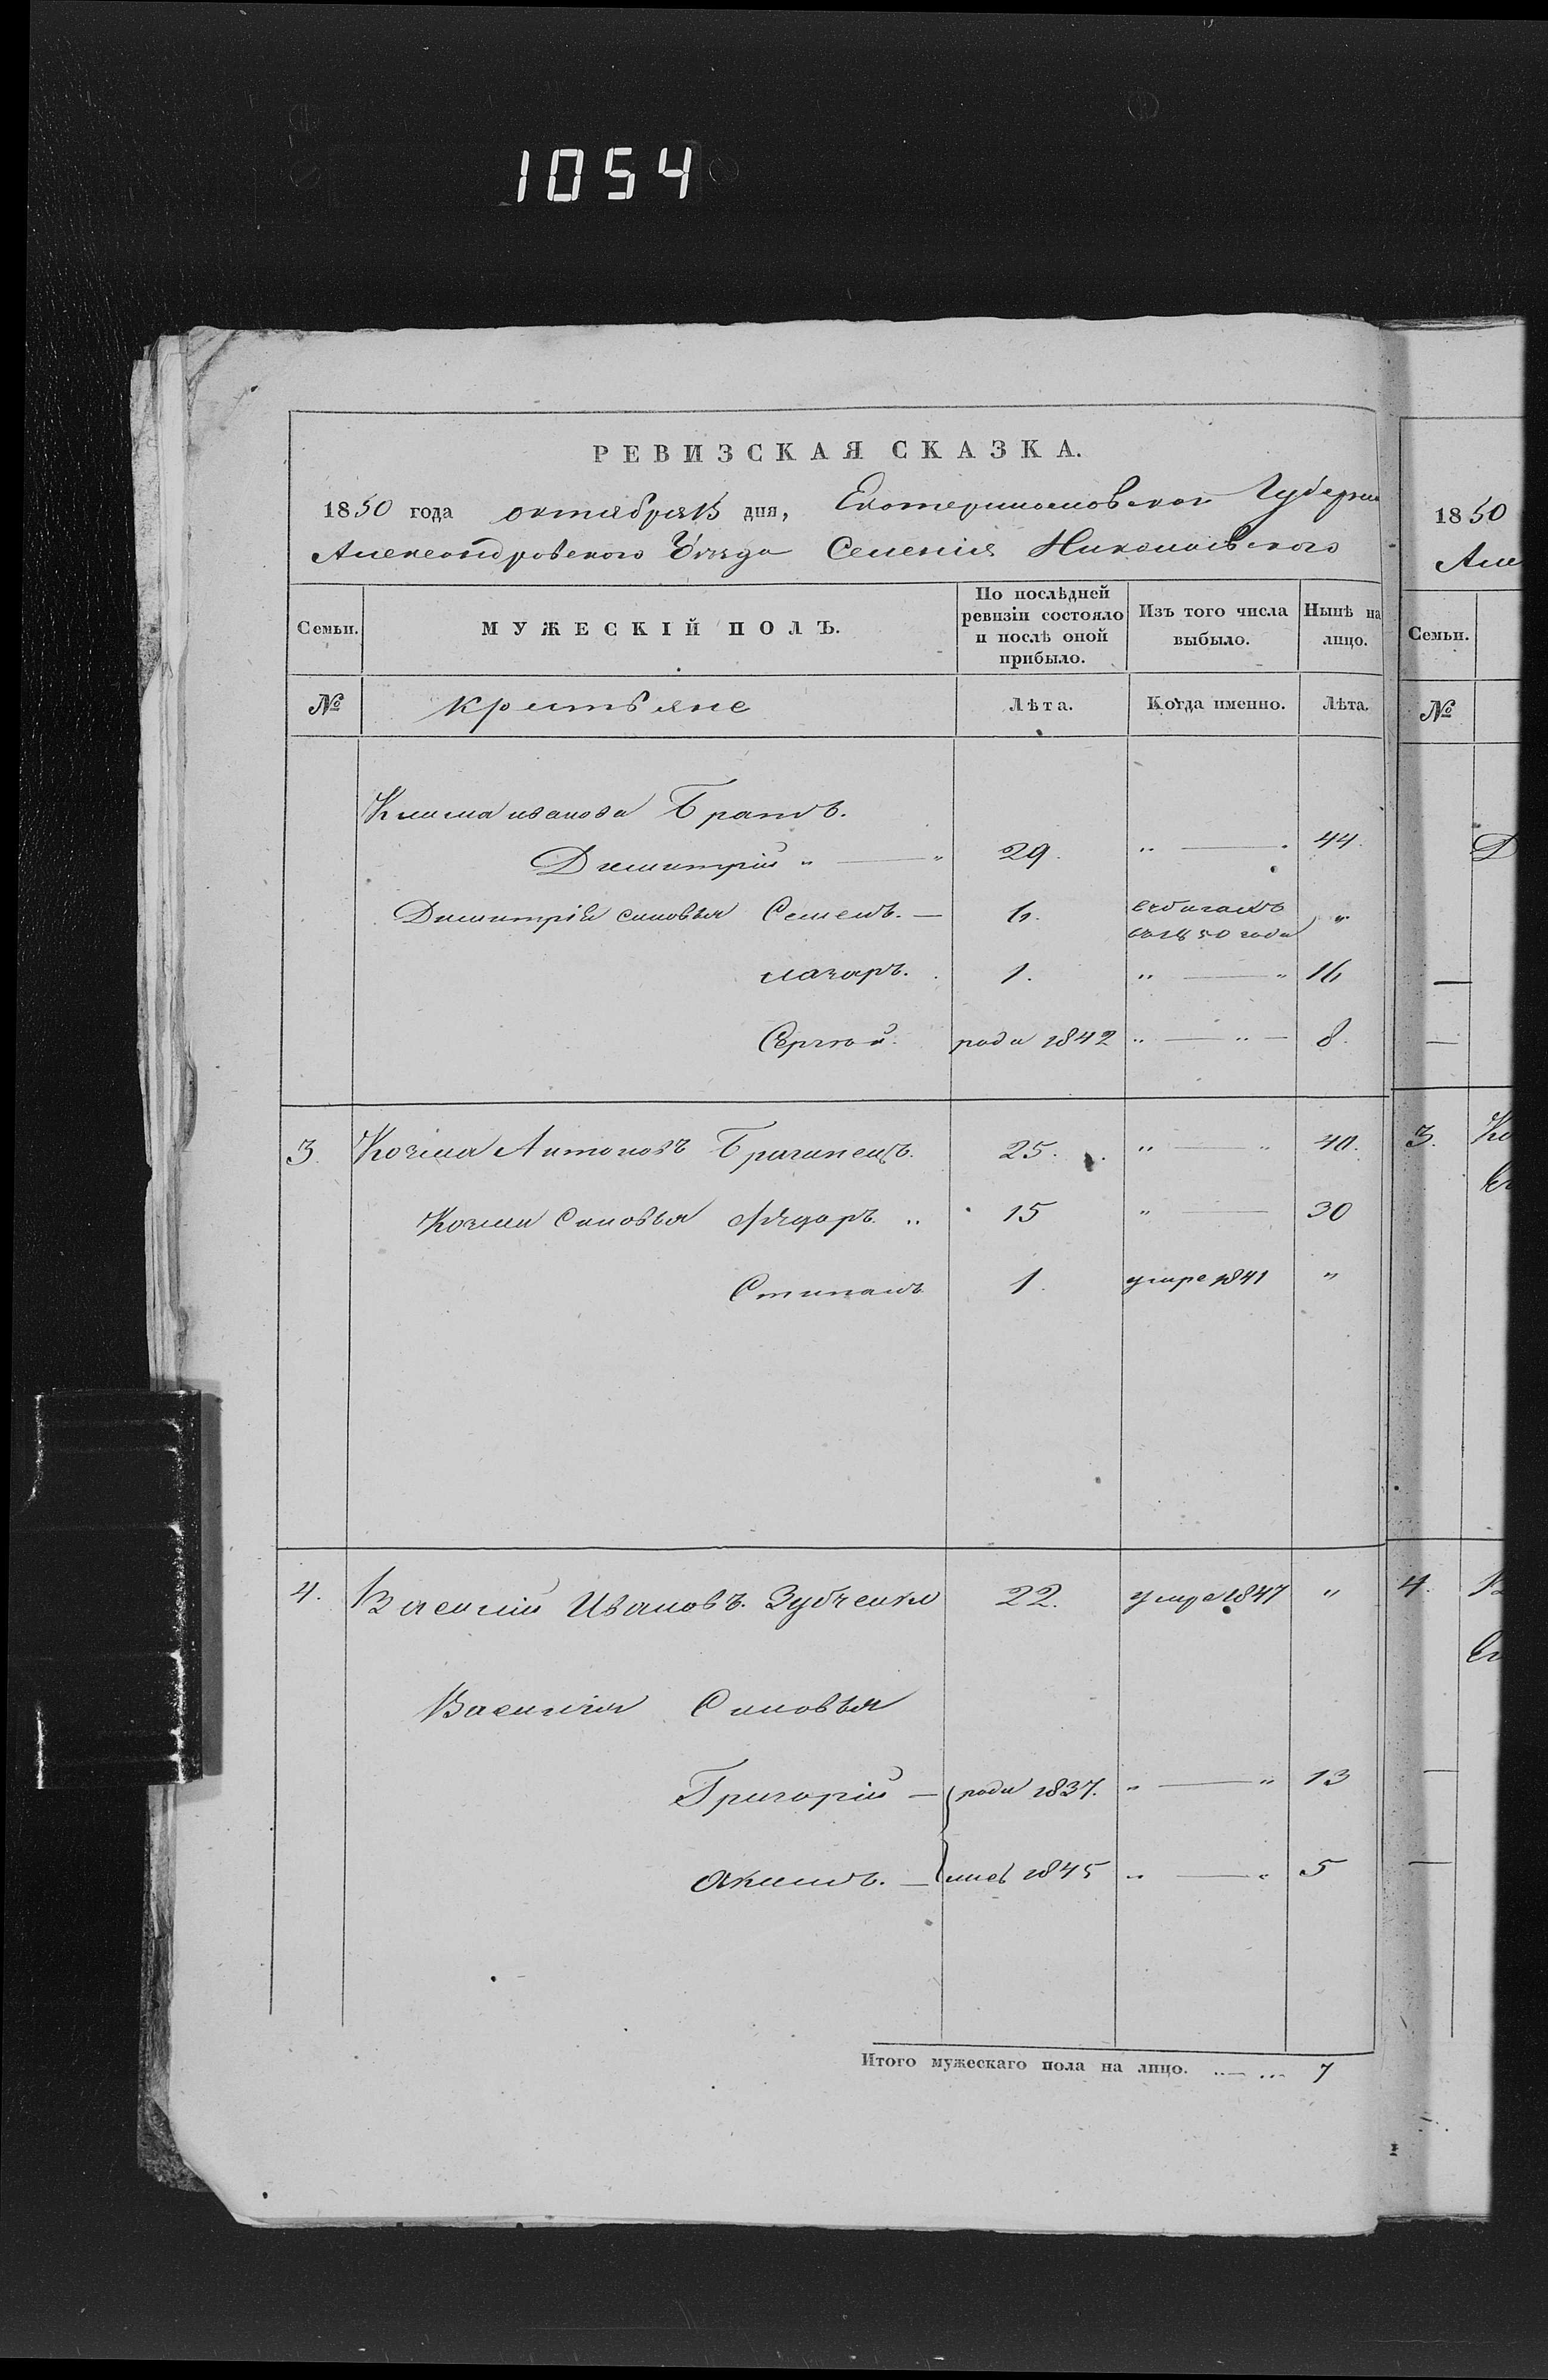 1054
РЕВИЗСКАЯ СКАЗКА.
1850 года октября 15 дня, Екатеринославской Губерніи
Александровского Уезда Селенія Николаевского
Семьи. МУЖЕСКІЙ ПОЛЪ. По послѣдней ревизіи состояло и послѣ оной прибыло. Изъ того числа выбыло. Нынѣ на лицо.
№ крестьяне Лѣта. Когда именно. Лѣта.
Клима иванова Братъ.
Димитрій " — " 29. " — " 44.
Димитрія синовья Семенъ. — 6. въ 1850 года "
лазаръ. 1. " — " 16
Сергей. роди 1842 " — " — 8.
3. Козма Антоновъ Брагинецъ. 25. " — " 40.
Козми Синовья Федоръ. " 15 " — 30
Стипанъ 1. умре 1841 "
4. Василій Ивановъ. Зубченко 22. умре 1847 "
Василія Синовья
Григорій — роди 1837. " — " 13
Якимъ. — лись 1845 " — " 5
Итого мужескаго пола на лицо. 7
1850
Але
Семьи.
№
Д
3. Ко
4. В